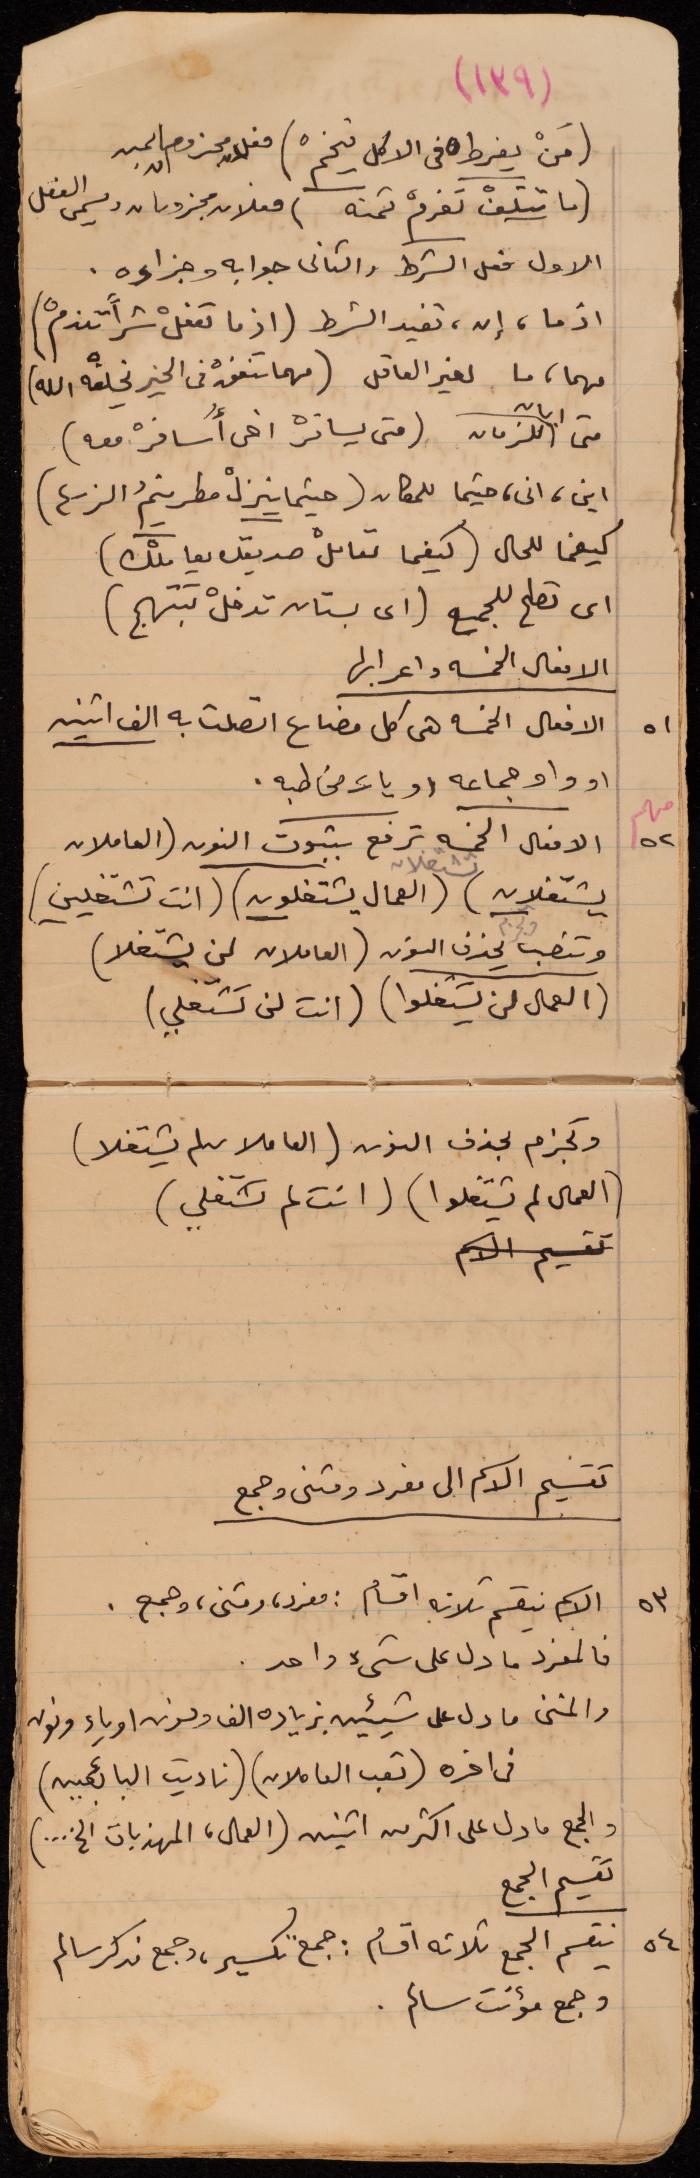 (١٣٩)
(مَنْ يفرطْ فى الاكل يتخمْ) فعلان مجزومان
(ما تتلفْ تغرمْ ثمنه) فعلان مجزومان ويسمى الفعل
الاول فعل الشرط والثانى جوابه وجزاءه .
اذما ، إن ، تفيد الشرط (اذما تفعلْ شراً تندمْ)
مهما، ما لغير العاقل (مهما تنفقْ فى الخير يخلفْه الله)
متى ايان للزمان (متى يسافرْ اخى أُسافرْ معه)
اين، انى، حيثما للمكان (حيثما ينزلْ مطر ينمُ الزرع)
كيفما للحال (كيفما تعاملْ صديقك يعاملْك)
اى تصلح للجميع (اى بستان تدخلْ تبتهج)
الافعال الخمسه واعرابها
٥١ الافعال الخمسه هى كل مضارع اتصلت به الف اثنين
او واو جماعه او ياء مخاطبه .
مهم
٥٢ الافعال الخمسه ترفع بثبوت النون (العاملان
تشتغلان
يشتغلان) (العمال يشتغلون) (انت تشتغلين)
وتنصب بحذف النون (العاملان لن يشتغلا)
(العمال لن يشتغلوا) (انت لن تشتغلي)
وتجزم بحذف النون (العاملان لم يشتغلا)
(العمال لم يشتغلوا) (انت لم تشتغلي)
تقسيم الاسم
تقسيم الاسم الى مفرد ومثنى وجمع
٥٣ الاسم ينقسم ثلاثه اقسام : مفرد، ومثنى، وجمع .
فالمفرد ما دل على شىء واحد .
والمثنى ما دل على شيئين بزياده الف ونون او ياء ونون
فى اخره (تعب العاملان) (ناديت البائعين)
والجمع ما دل على اكثر من اثنين (العمال، المهذبات الخ....)
تقسيم الجمع
٥٤ ينقسم الجمع ثلاثه اقسام : جمع تكسير، وجمع مذكر سالم
وجمع مؤنث سالم .